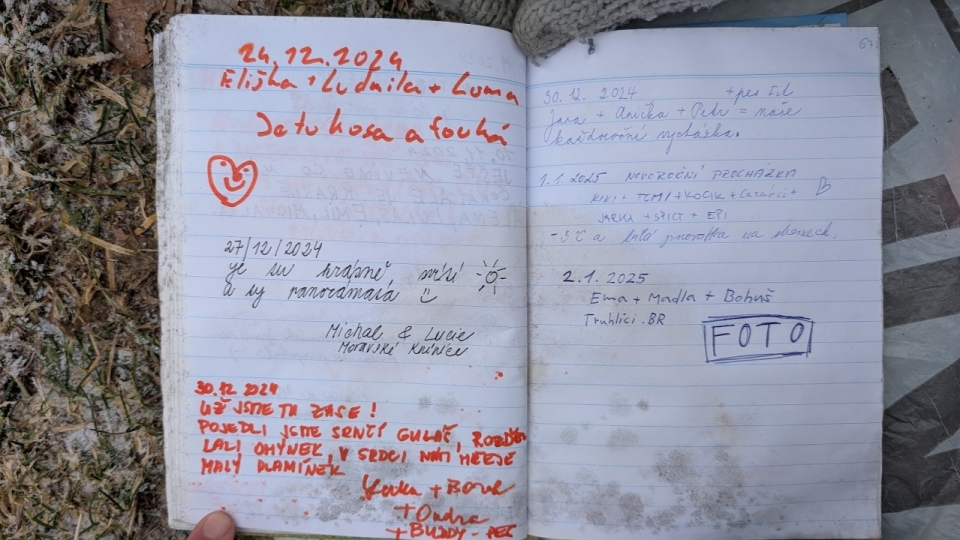 24.12.2024
Eliška + Ludmila + Luma
Je tu kosa a fouká
27/12/2024
je tu krásně, svítí
a ty panoramata
Michal & Lucie
Moravské Knínice
30.12 2024
UŽ JSME TU ZASE!
POJEDLI JSME SRNČÍ GULÁŠ, ROZDĚ
LALI OHÝNEK, V SRDCI NÁM HŘEJE
MALÝ PLAMÍNEK
+ Ondra
+ BUDDY - PES
67.
30. 12. 2024 + pes
Jana + Anička + Petr = naše
každoroční vycházka.
1.1.2025 NOVOROČNÍ PROCHÁZKA
KIKI + TOMI + KOCIK +
JARKA +
-3°C a bílá na stromech.
2.1. 2025
Ema + Madla + Bohuš
Truhlíci.BR
FOTO